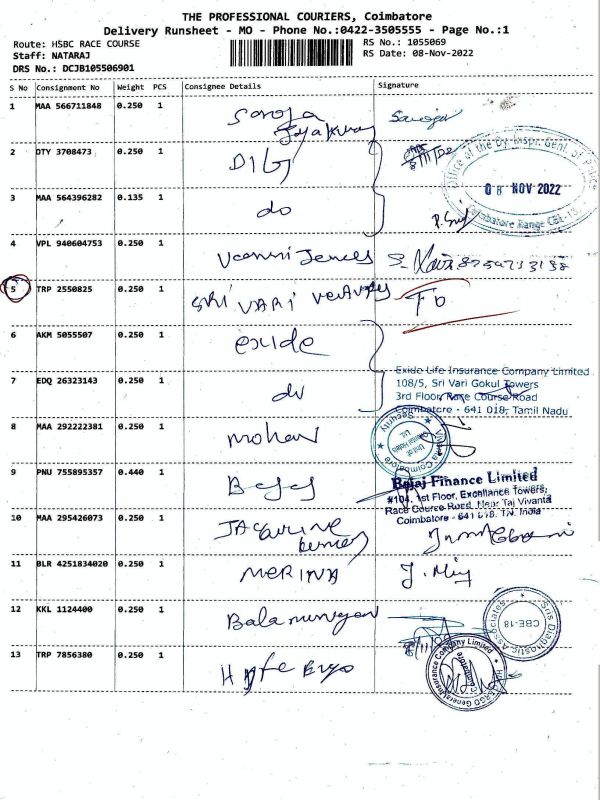 THE PROFESSIONAL COURIERS, Coimbatore
Delivery Runsheet - MO - Phone No.:0422-3505555 - Page No.:1
Route: HSBC RACE COURSE RS No.: 1055069
Staff: NATARAJ RS Date: 08-Nov-2022
DRS No.: DCJB105506901
S No Consignment No Weight PCS Consignee Details Signature
1 MAA 566711848 0.250 1 Saroja
2 DTY 3708473 0.250 1 DIG
Office of the Dy. Inspr. Genl. of Police
08 NOV 2022
Coimbatore Range CBE-18
3 MAA 564396282 0.135 1 do
4 VPL 940604753 0.250 1
5 TRP 2550825 0.250 1 SRI VARI
6 AKM 5055507 0.250 1 exide
Exide Life Insurance Company Limited
108/5, Sri Vari Gokul Towers
3rd Floor, Race Course Road
Coimbatore - 641 018, Tamil Nadu
7 EDQ 26323143 0.250 1 do
8 MAA 292222381 0.250 1 mohan
Vivanta Coimbatore
Security
9 PNU 755895357 0.440 1 Bajaj
Bajaj Finance Limited
#104, 1st Floor, Excellance Towers,
Race Course Road, Near Taj Vivanta
Coimbatore - 641 018. TN. India
10 MAA 295426073 0.250 1
11 BLR 4251834020 0.250 1 MERINA
12 KKL 1124400 0.250 1 Balamurugan
Sris Diagnostic Associates
CBE-18
13 TRP 7856380 0.250 1
General Insurance Company Limited
Coimbatore